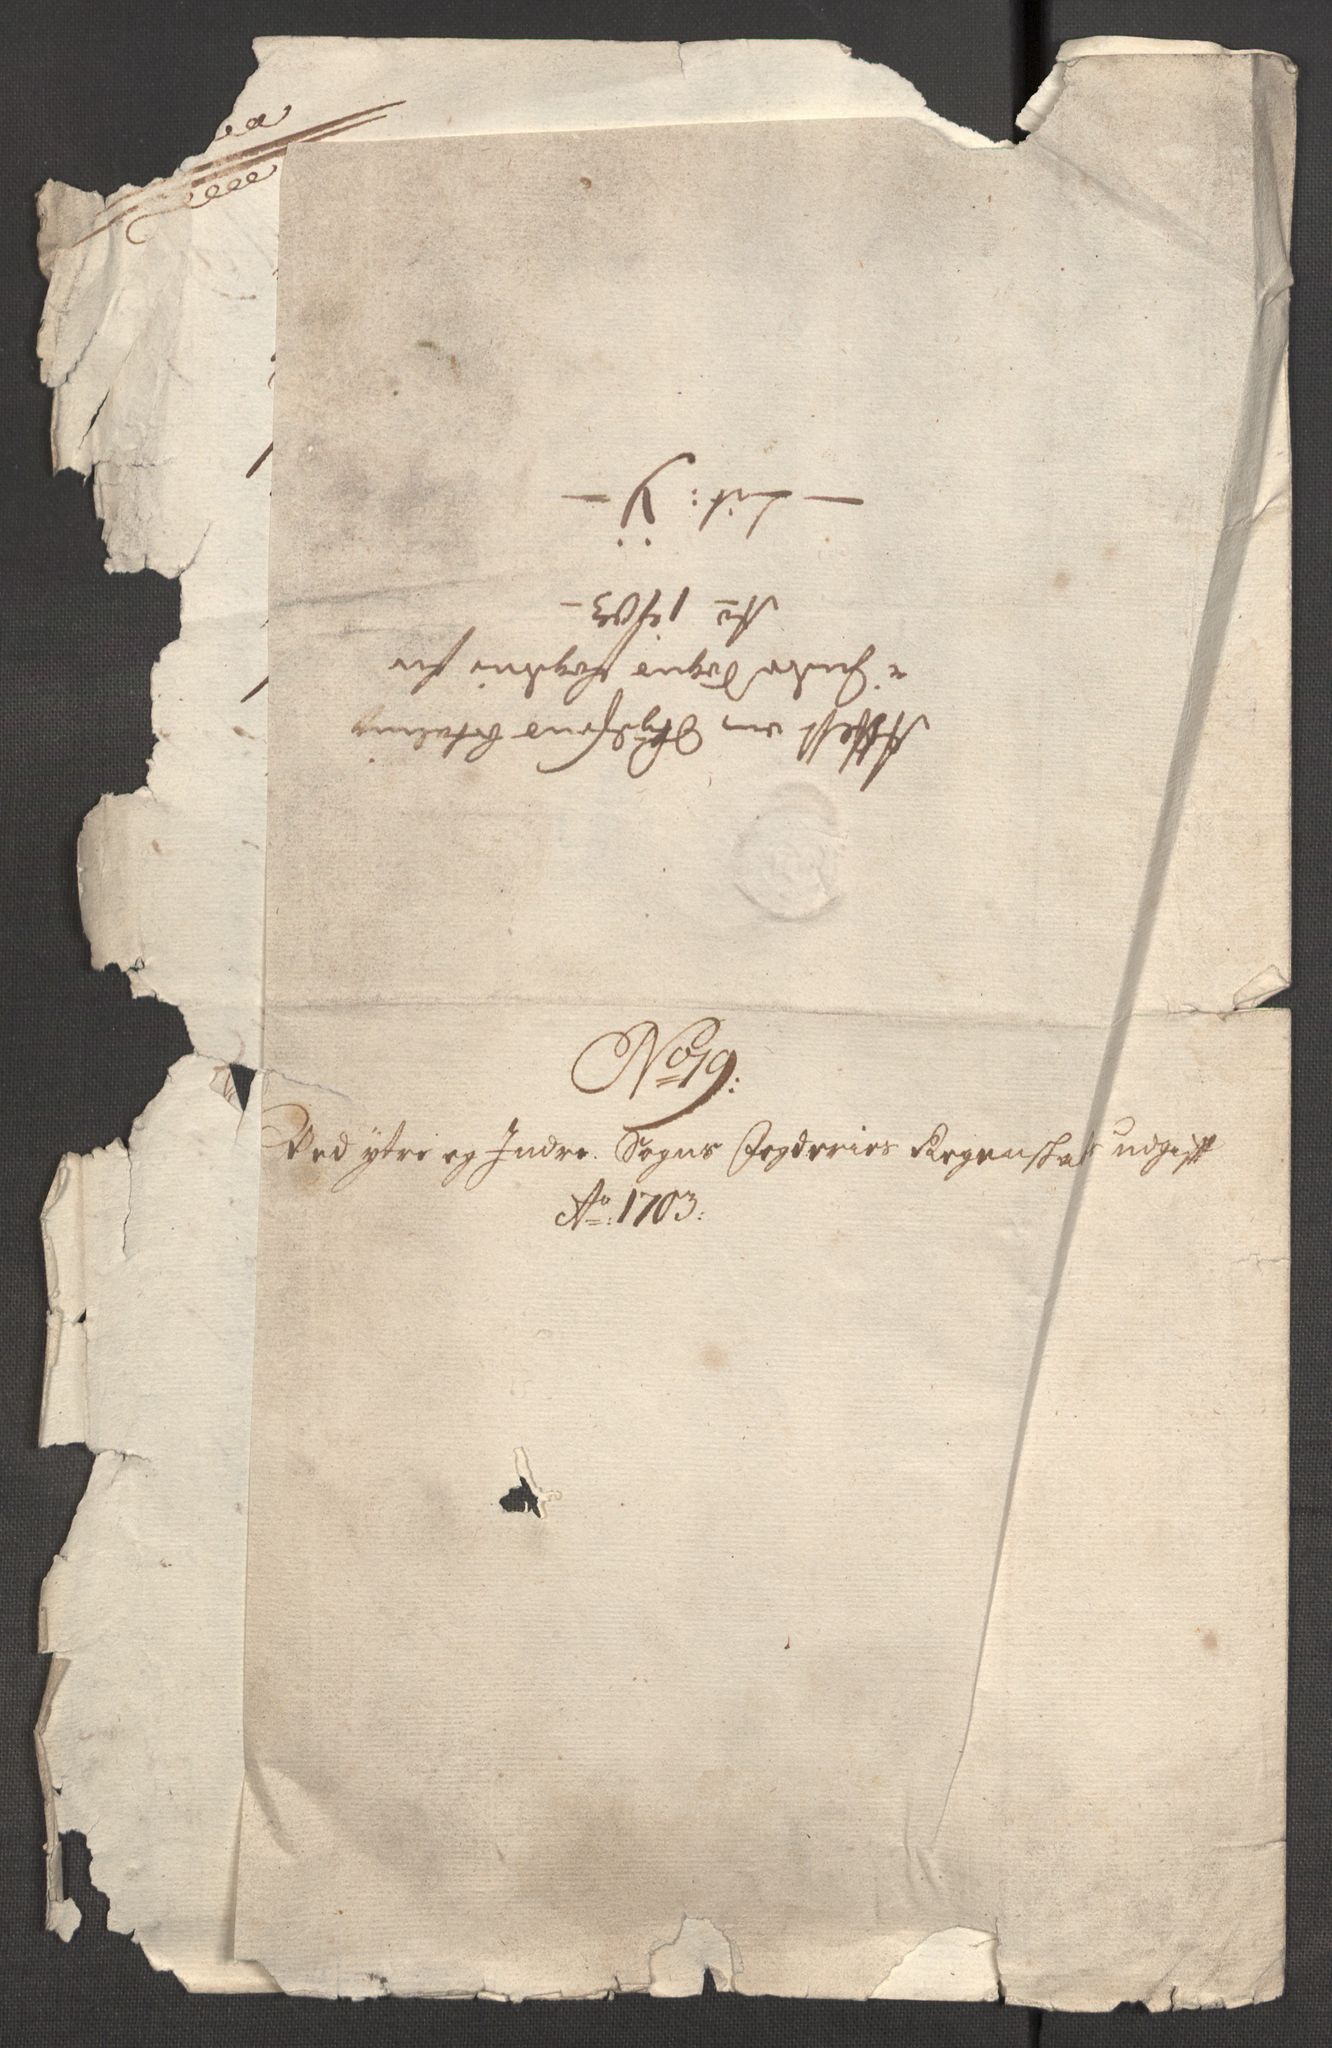 Attest om
i Indre Sogns fogderi for
Ao 1703
Lit: Ÿ
No 19:
Ved ytre og Indre Sogns Fogderies Regenskab udgift
Ao: 1703: